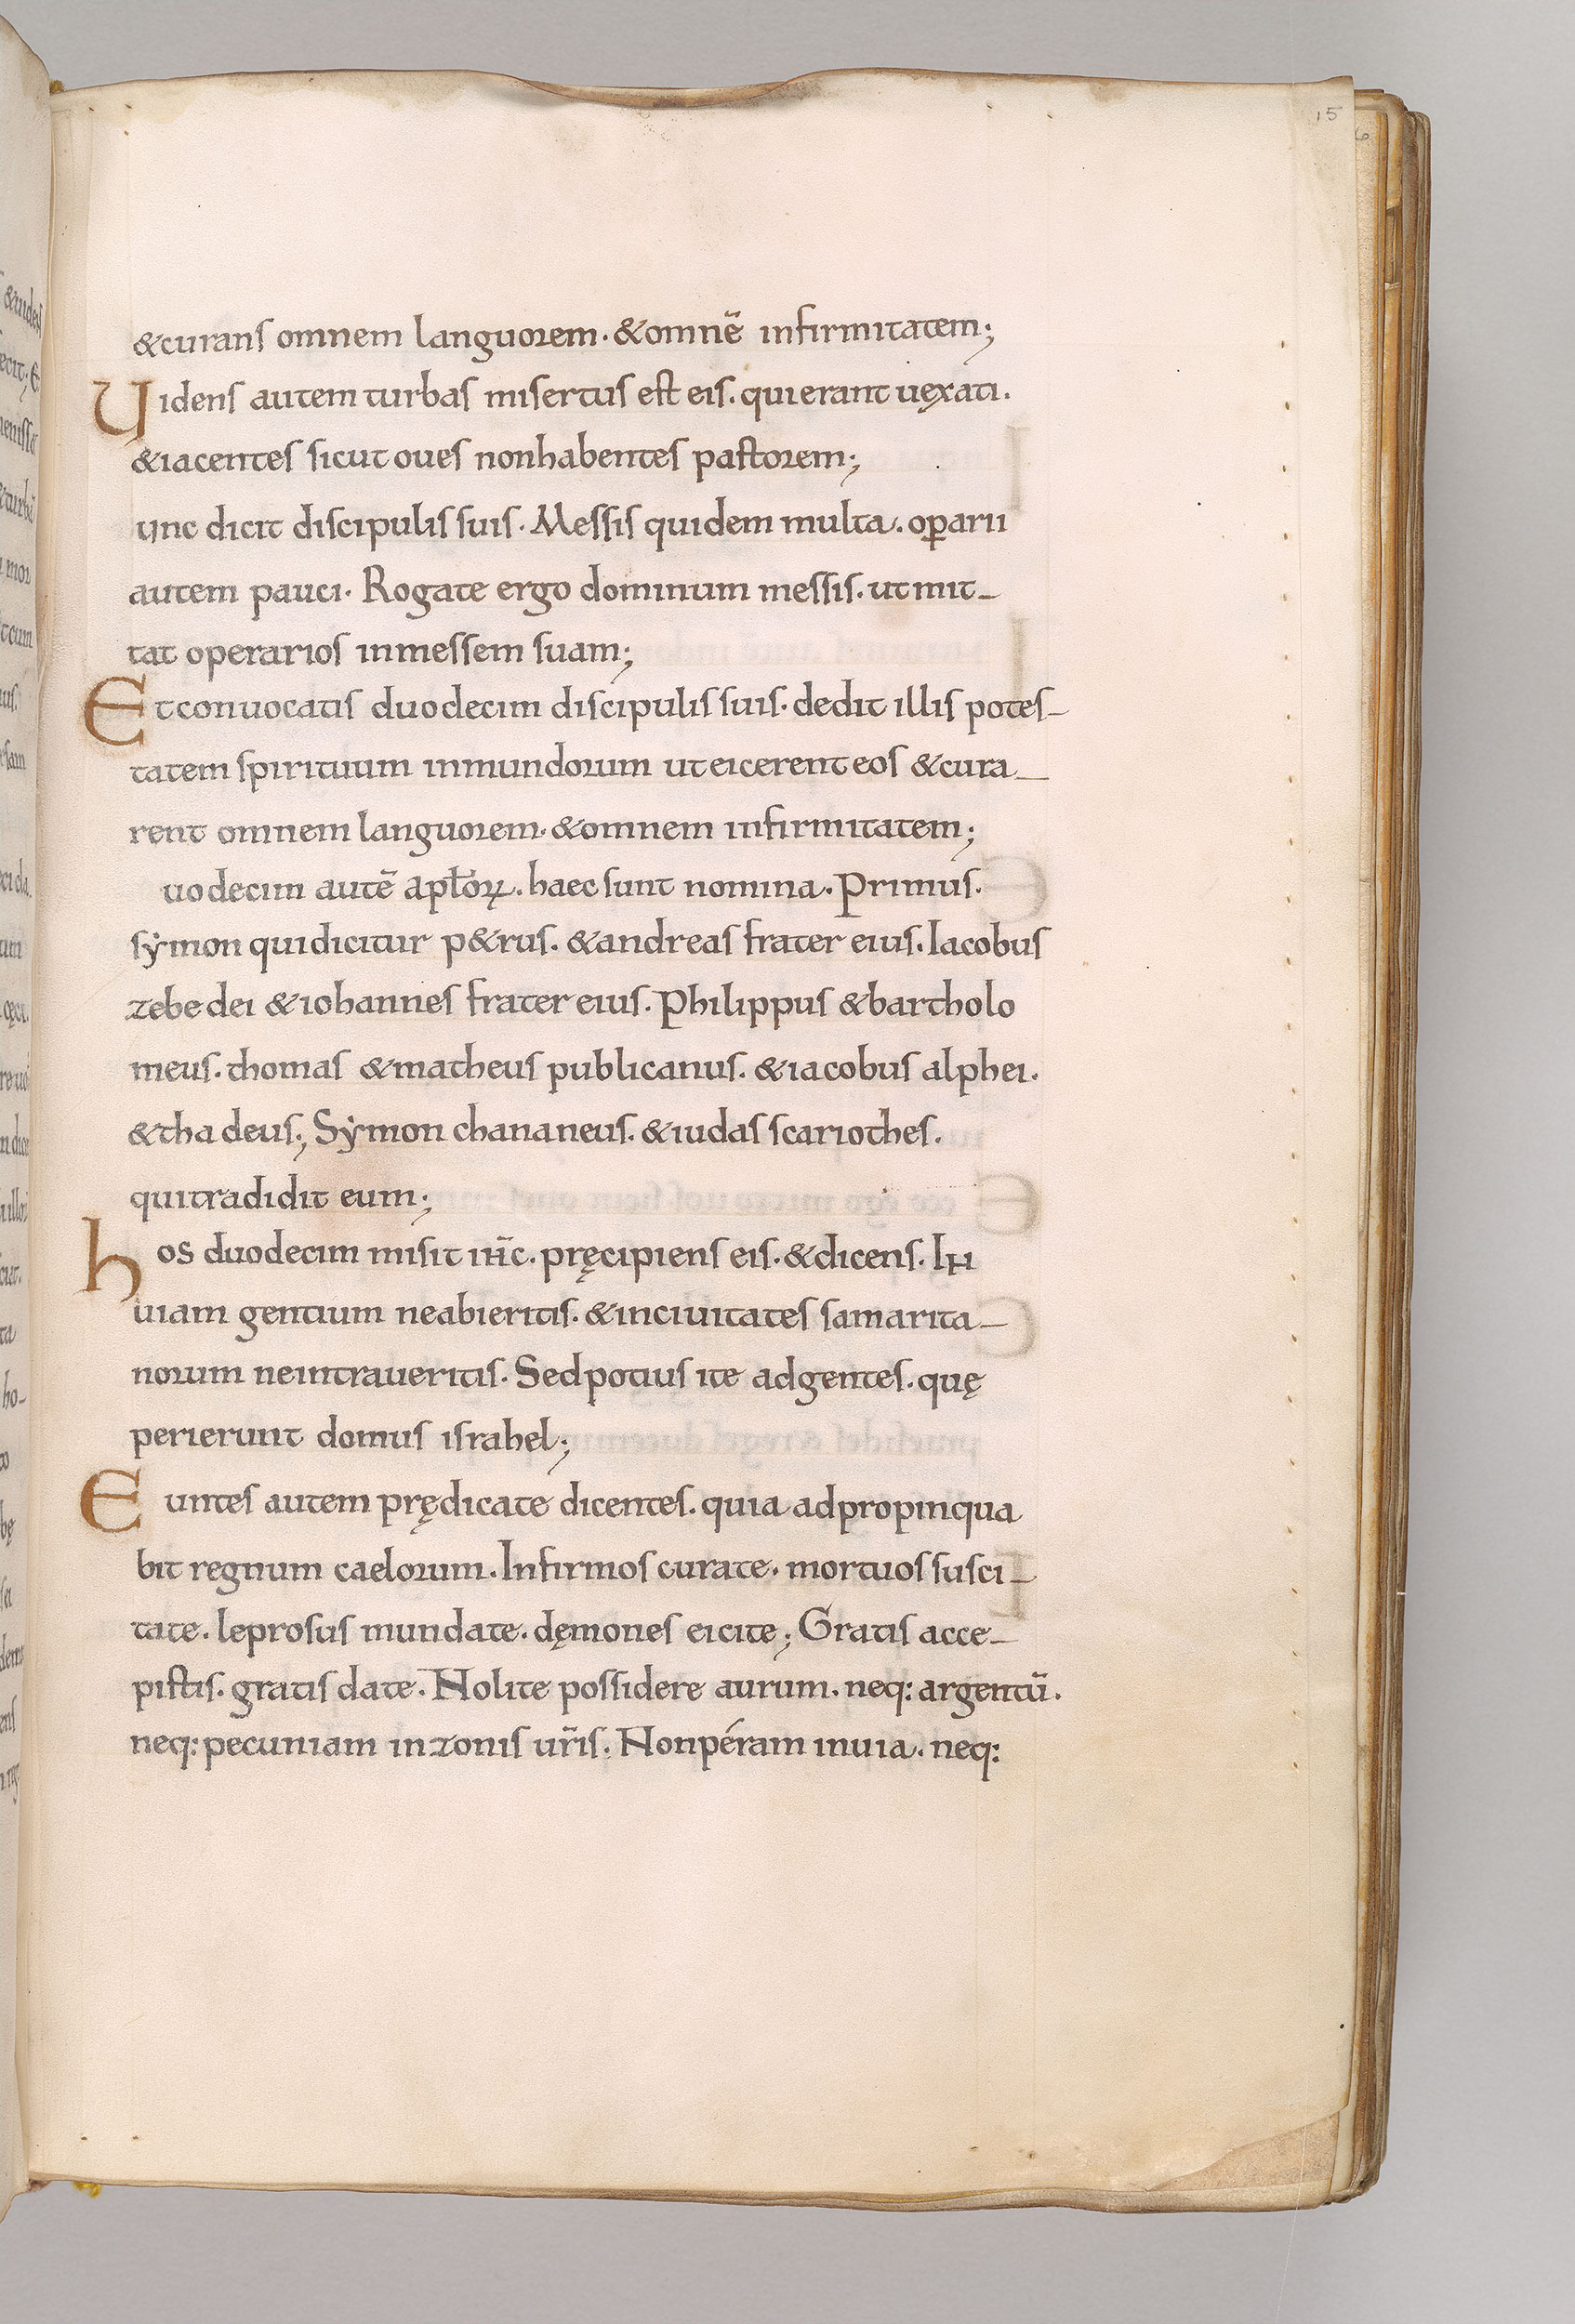 15
6
&curans omnem languorem · &omnē infirmitatem;
Uidens autem turbas misertus est eis. qui erant uęxati.
&iacentes sicut oues non habentes pastorem;
unc dicit discipulis suis · Messis quidem multa. oꝑarii
autem pauci · Rogate ergo dominum messis. ut mit_
tat operarios inmessem suam;
Et conuocatis duodecim discipulis suis · dedit illis potes_
tatem spirituum inmundorum ut eicerent eos &cura_
rent omnem languorem · &omnem infirmitatem;
uodecim autē aptl̄oꝝ. haec sunt nomina. Primus.
sẏmon qui dicitur p&rus. &andreas frater eius. Iacobus
zebedei &iohannes frater eius. Philippus &bartholo
meus. thomas &matheus publicanus. &iacobus alphei.
&thadeus; Sẏmon chananeus. &iudas scariothes.
qui tradidit eum;
hos duodecim misit ih̄c. pręcipiens eis. &dicens. IN
uiam gentium ne abieritis. &in ciuitates samarita_
norum ne intraueritis. Sed potius ite ad gentes. quę
perierunt domus israhel;
Euntes autem prędicate dicentes. quia adpropinqua
bit regnum caelorum. Infirmos curate. mortuos susci_
tate. leprosus mundate. dęmones eicite; Gratis acce_
pistis. gratis date. Nolite possidere aurum. neq: argentū.
neq: pecuniam in zonis ur̄is. Non péram in uia. neq: